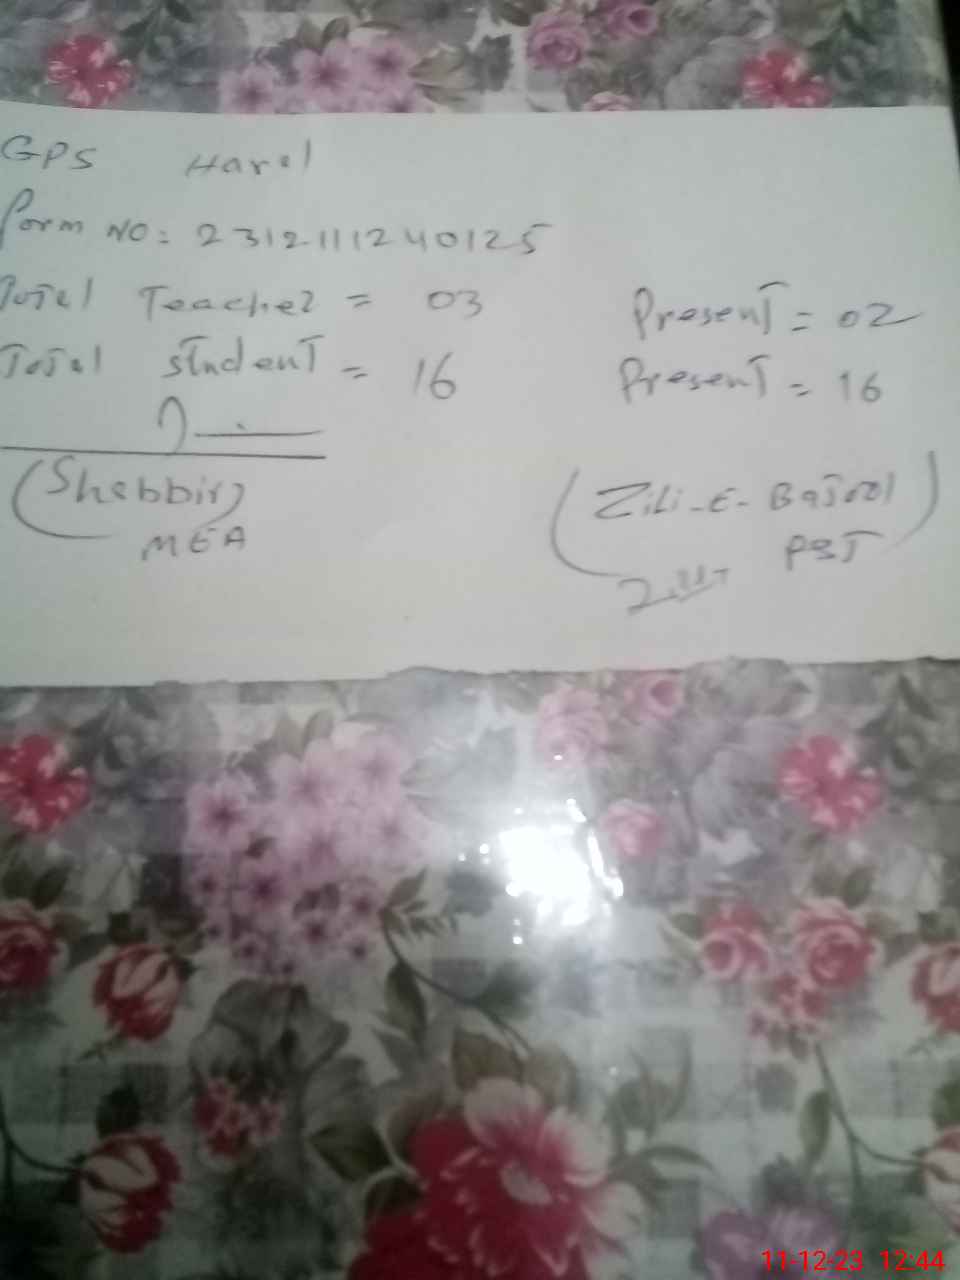 GPS Harel
Form NO: 2312111240125
Total Teacher = 03 Present = 02
Total student = 16 Present = 16
(Shabbir)
MEA
(Zili-E-Batool
PST)
11-12-23 12:44